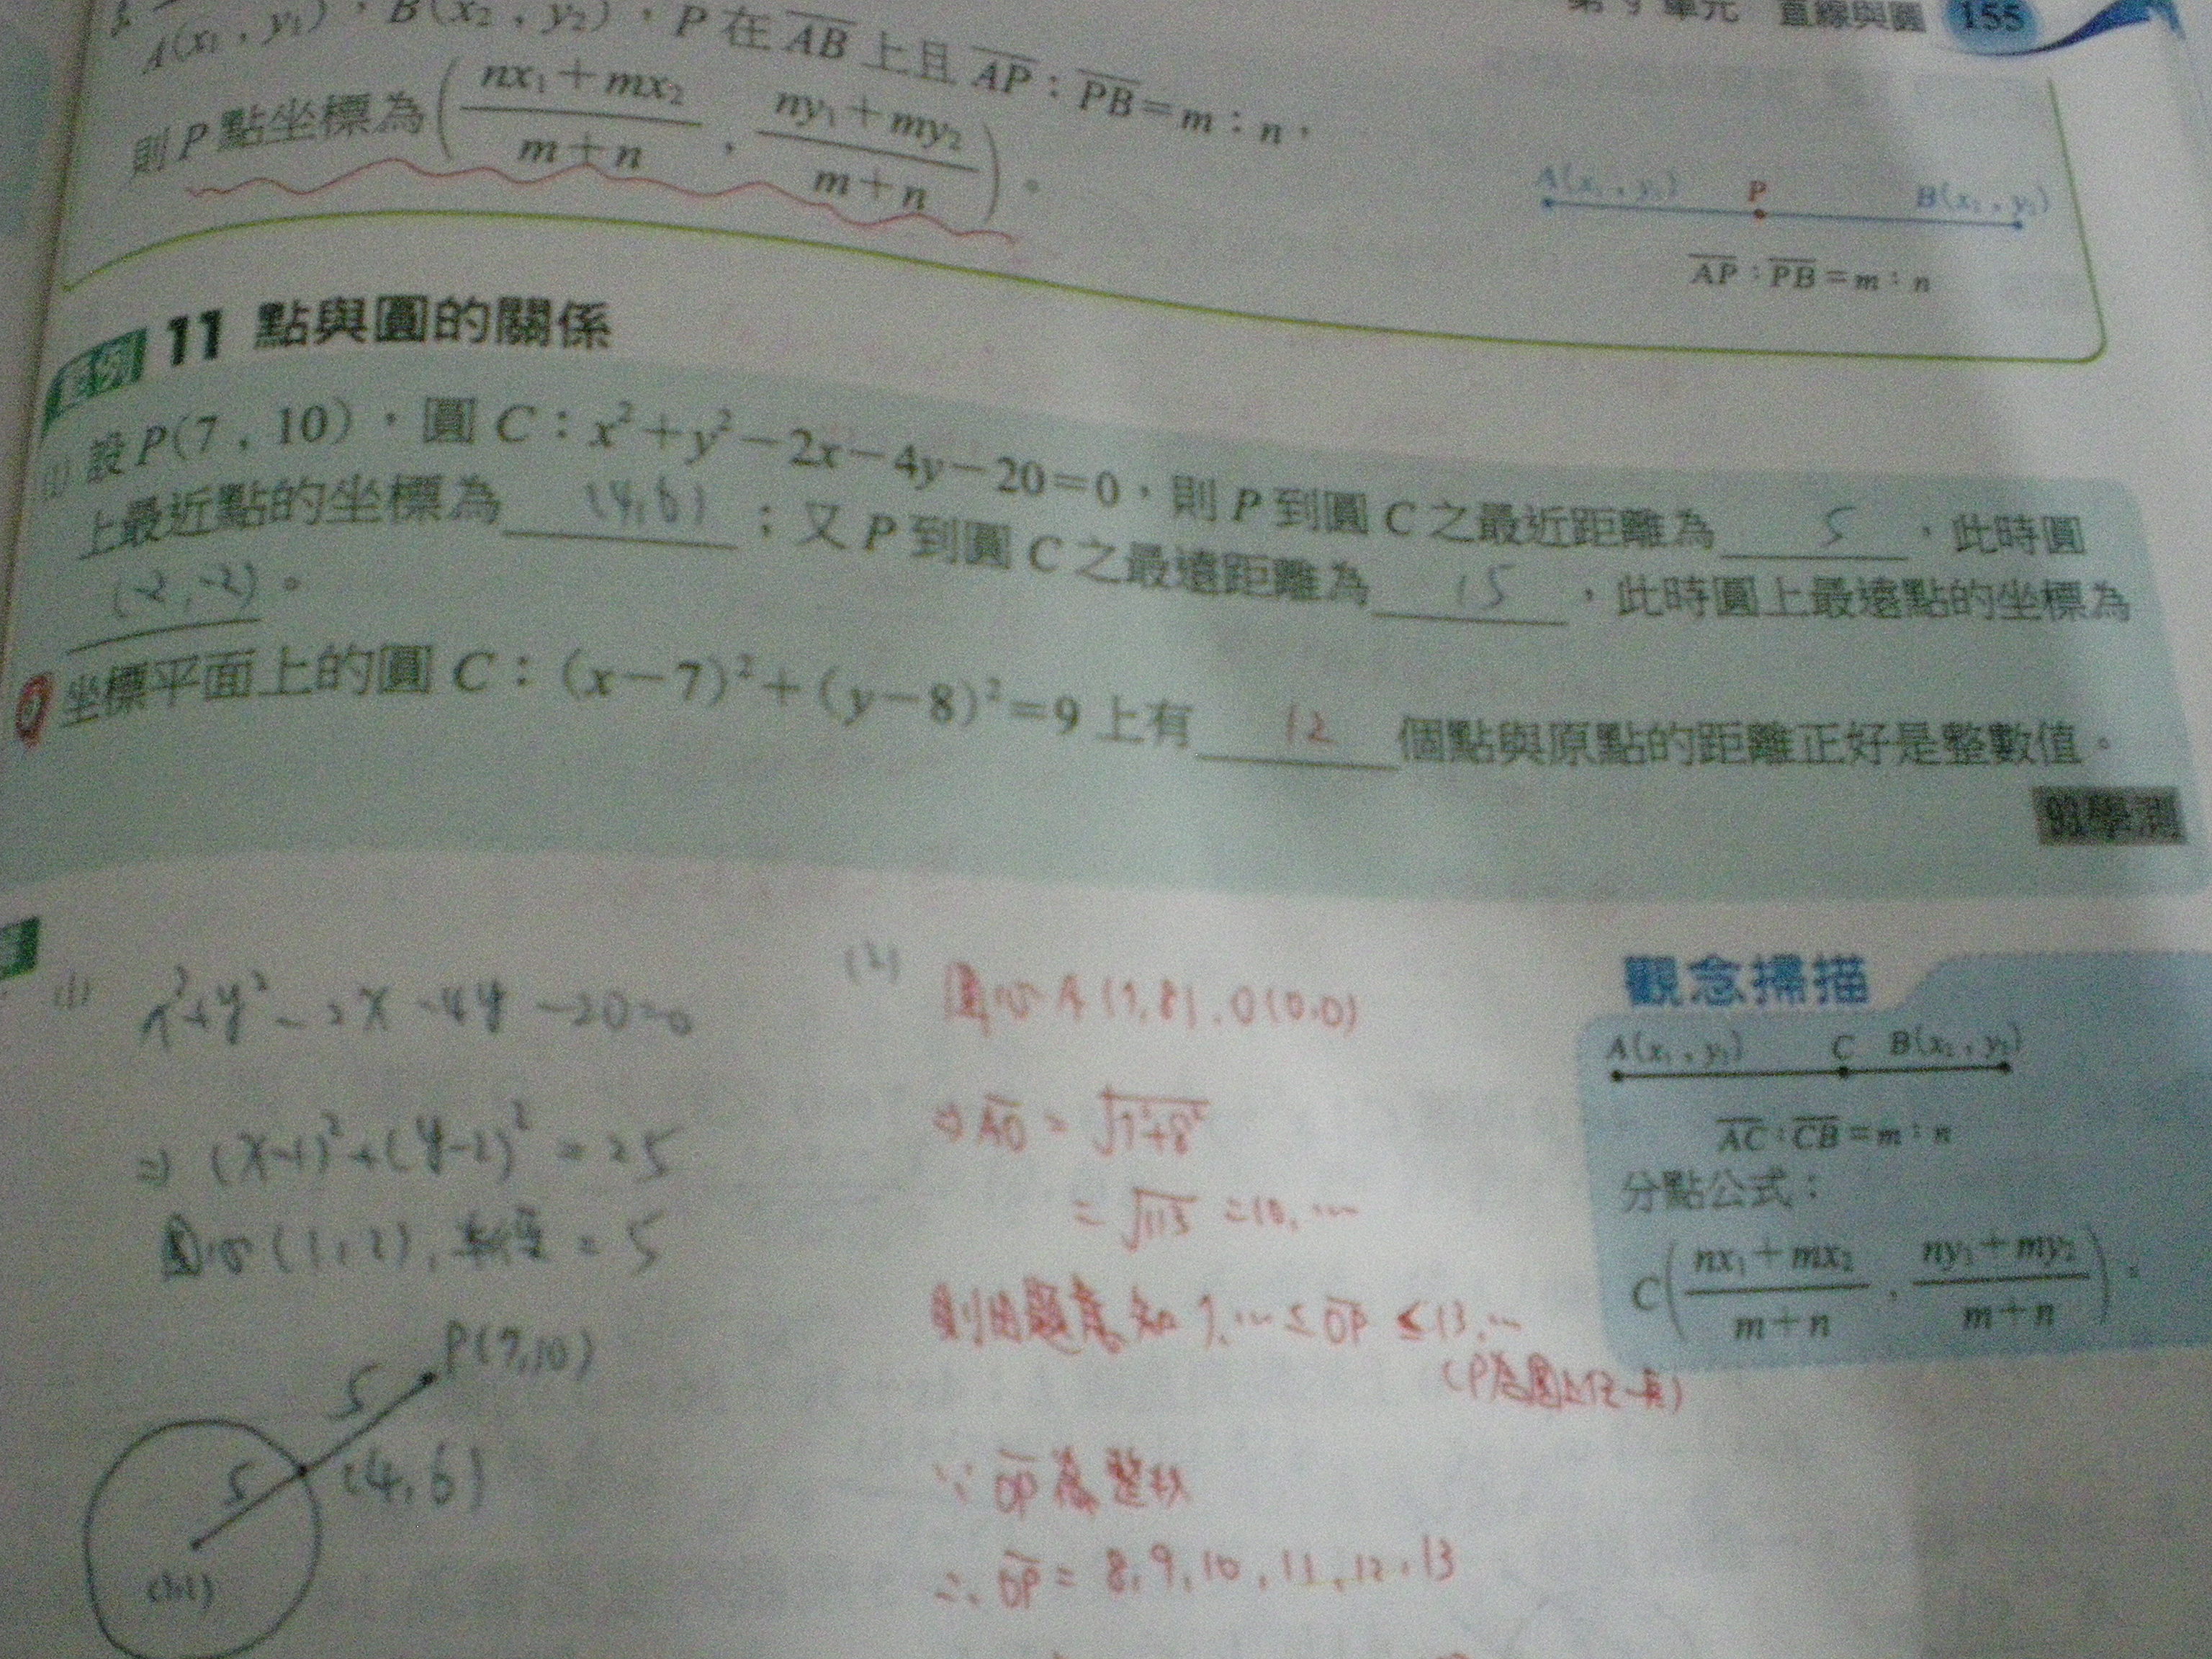 第9單元 直線與圓 155
A(x₁，y₁)，B(x₂，y₂)，P在AB上且AP：PB=m：n，
則P點坐標為(nx₁+mx₂/m+n，ny₁+my₂/m+n)。
A(x₁，y₁) P B(x₂，y₂)
AP：PB=m：n
範例 11 點與圓的關係
(1) 設P(7，10)，圓C：x²+y²−2x−4y−20=0，則P到圓C之最近距離為 5，此時圓
上最近點的坐標為 (4,6)；又P到圓C之最遠距離為 15，此時圓上最遠點的坐標為
(-2,-2)。
坐標平面上的圓C：(x−7)²+(y−8)²=9上有 12 個點與原點的距離正好是整數值。
學測
(1) x²+y²-2x-4y-20=0
⇒ (x-1)²+(y-2)²=25
圓心(1,2), 半徑=5
P(7,10)
5
5
(4,6)
(1,2)
(2) 圓心A(7,8), O(0,0)
⇒ AO = √7²+8²
= √113 =10.…
則由題意知 7.… ≤ OP ≤ 13.…
(P為圓上任一點)
∵ OP為整數
∴ OP = 8, 9, 10, 11, 12, 13
觀念掃描
A(x₁，y₁) C B(x₂，y₂)
AC：CB=m：n
分點公式：
C(nx₁+mx₂/m+n，ny₁+my₂/m+n)。